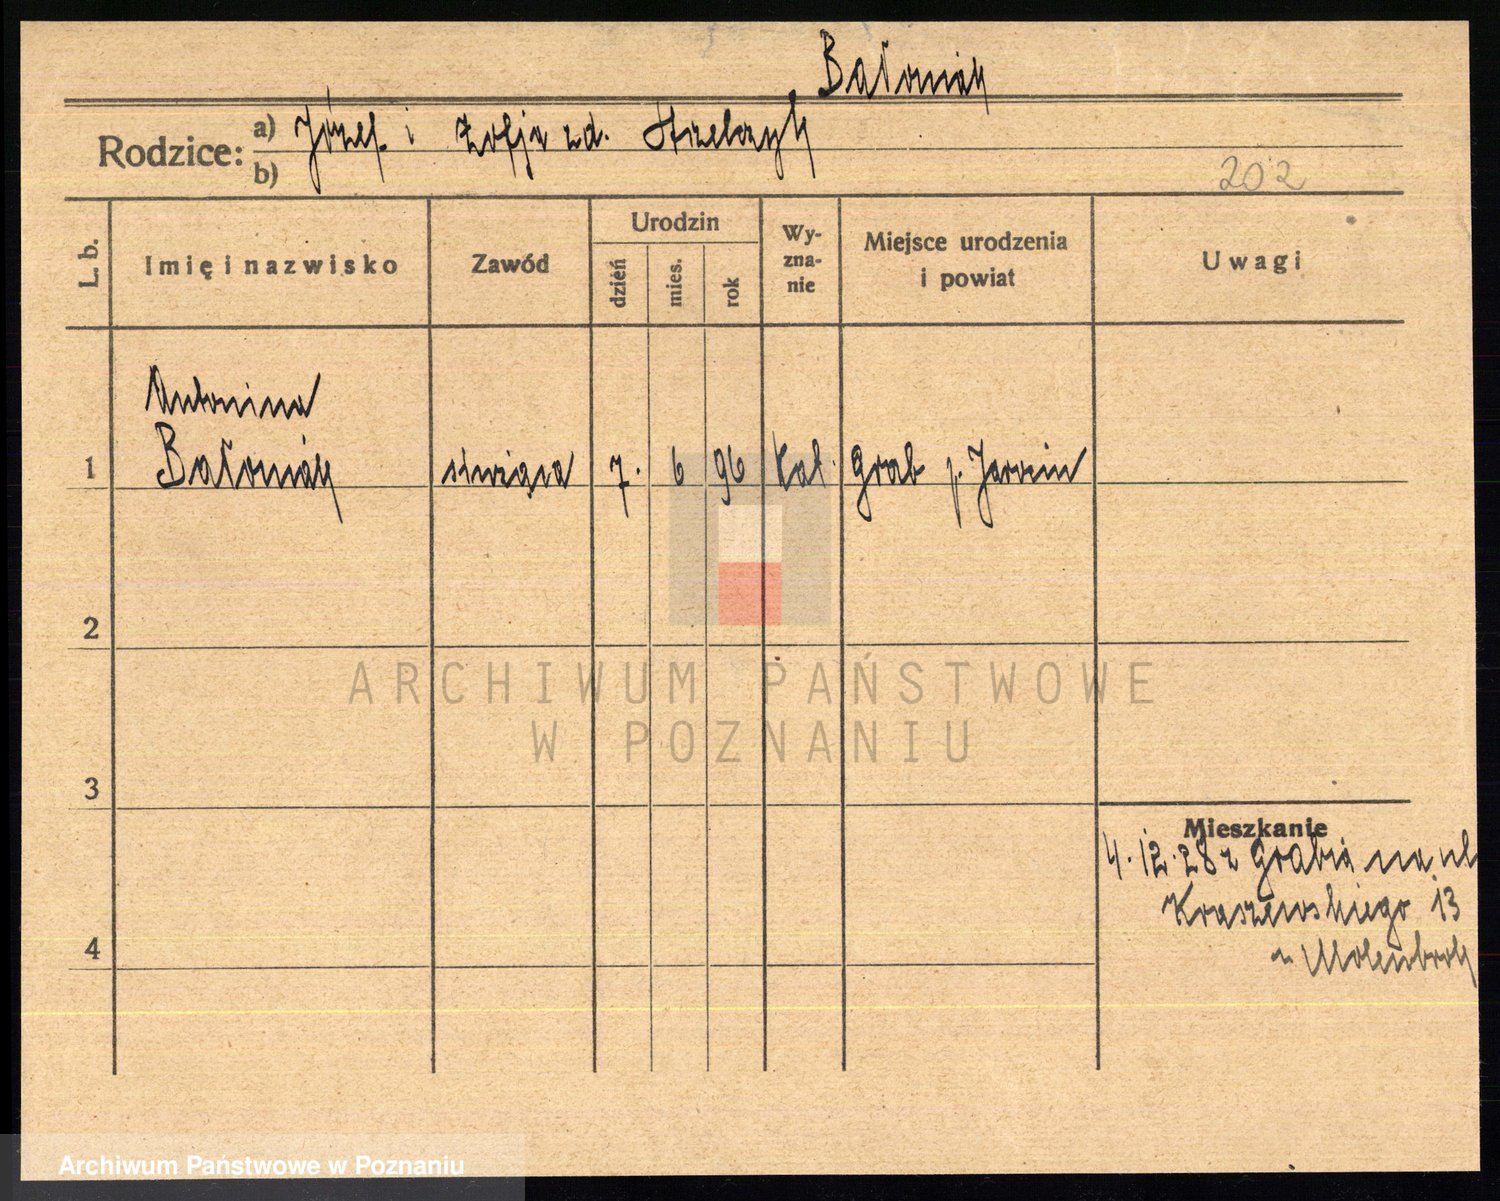 Bałoniak
Rodzice: a) Józef i Zofja zd. Strzelczyk
b)
202
L. b.
Imię i nazwisko
Zawód
Urodzin
dzień
mies.
rok
Wy-
zna-
nie
Miejsce urodzenia
i powiat
Uwagi
Antonina
1 Bałoniak służąca 7. 6 96 kat. Grab p. Jarocin
2
ARCHIWUM PAŃSTWOWE
W POZNANIU
3
Mieszkanie
4.12.28 z Grabia na ul
Kraszewskiego 13
4
Archiwum Państwowe w Poznaniu